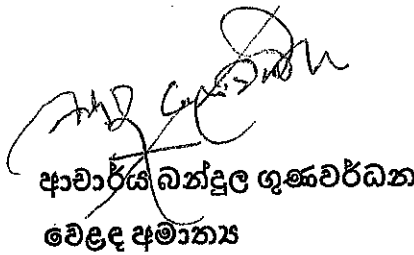 ආචාර්ය බන්දුල ගුණවර්ධන
වෙළඳ අමාත්‍ය